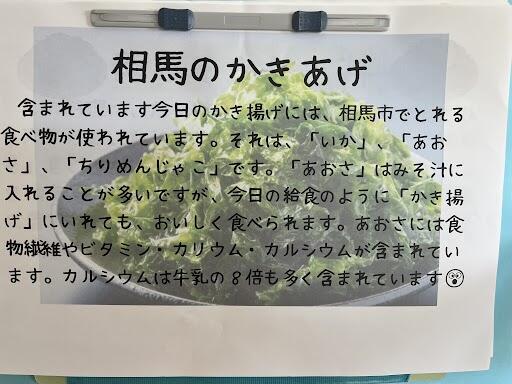 相馬のかきあげ
含まれています今日のかき揚げには、相馬市でとれる
食べ物が使われています。それは、「いか」、「あお
さ」、「ちりめんじゃこ」です。「あおさ」はみそ汁に
入れることが多いですが、今日の給食のように「かき揚
げ」にいれても、おいしく食べられます。あおさには食
物繊維やビタミン・カリウム・カルシウムが含まれてい
ます。カルシウムは牛乳の8倍も多く含まれています😲